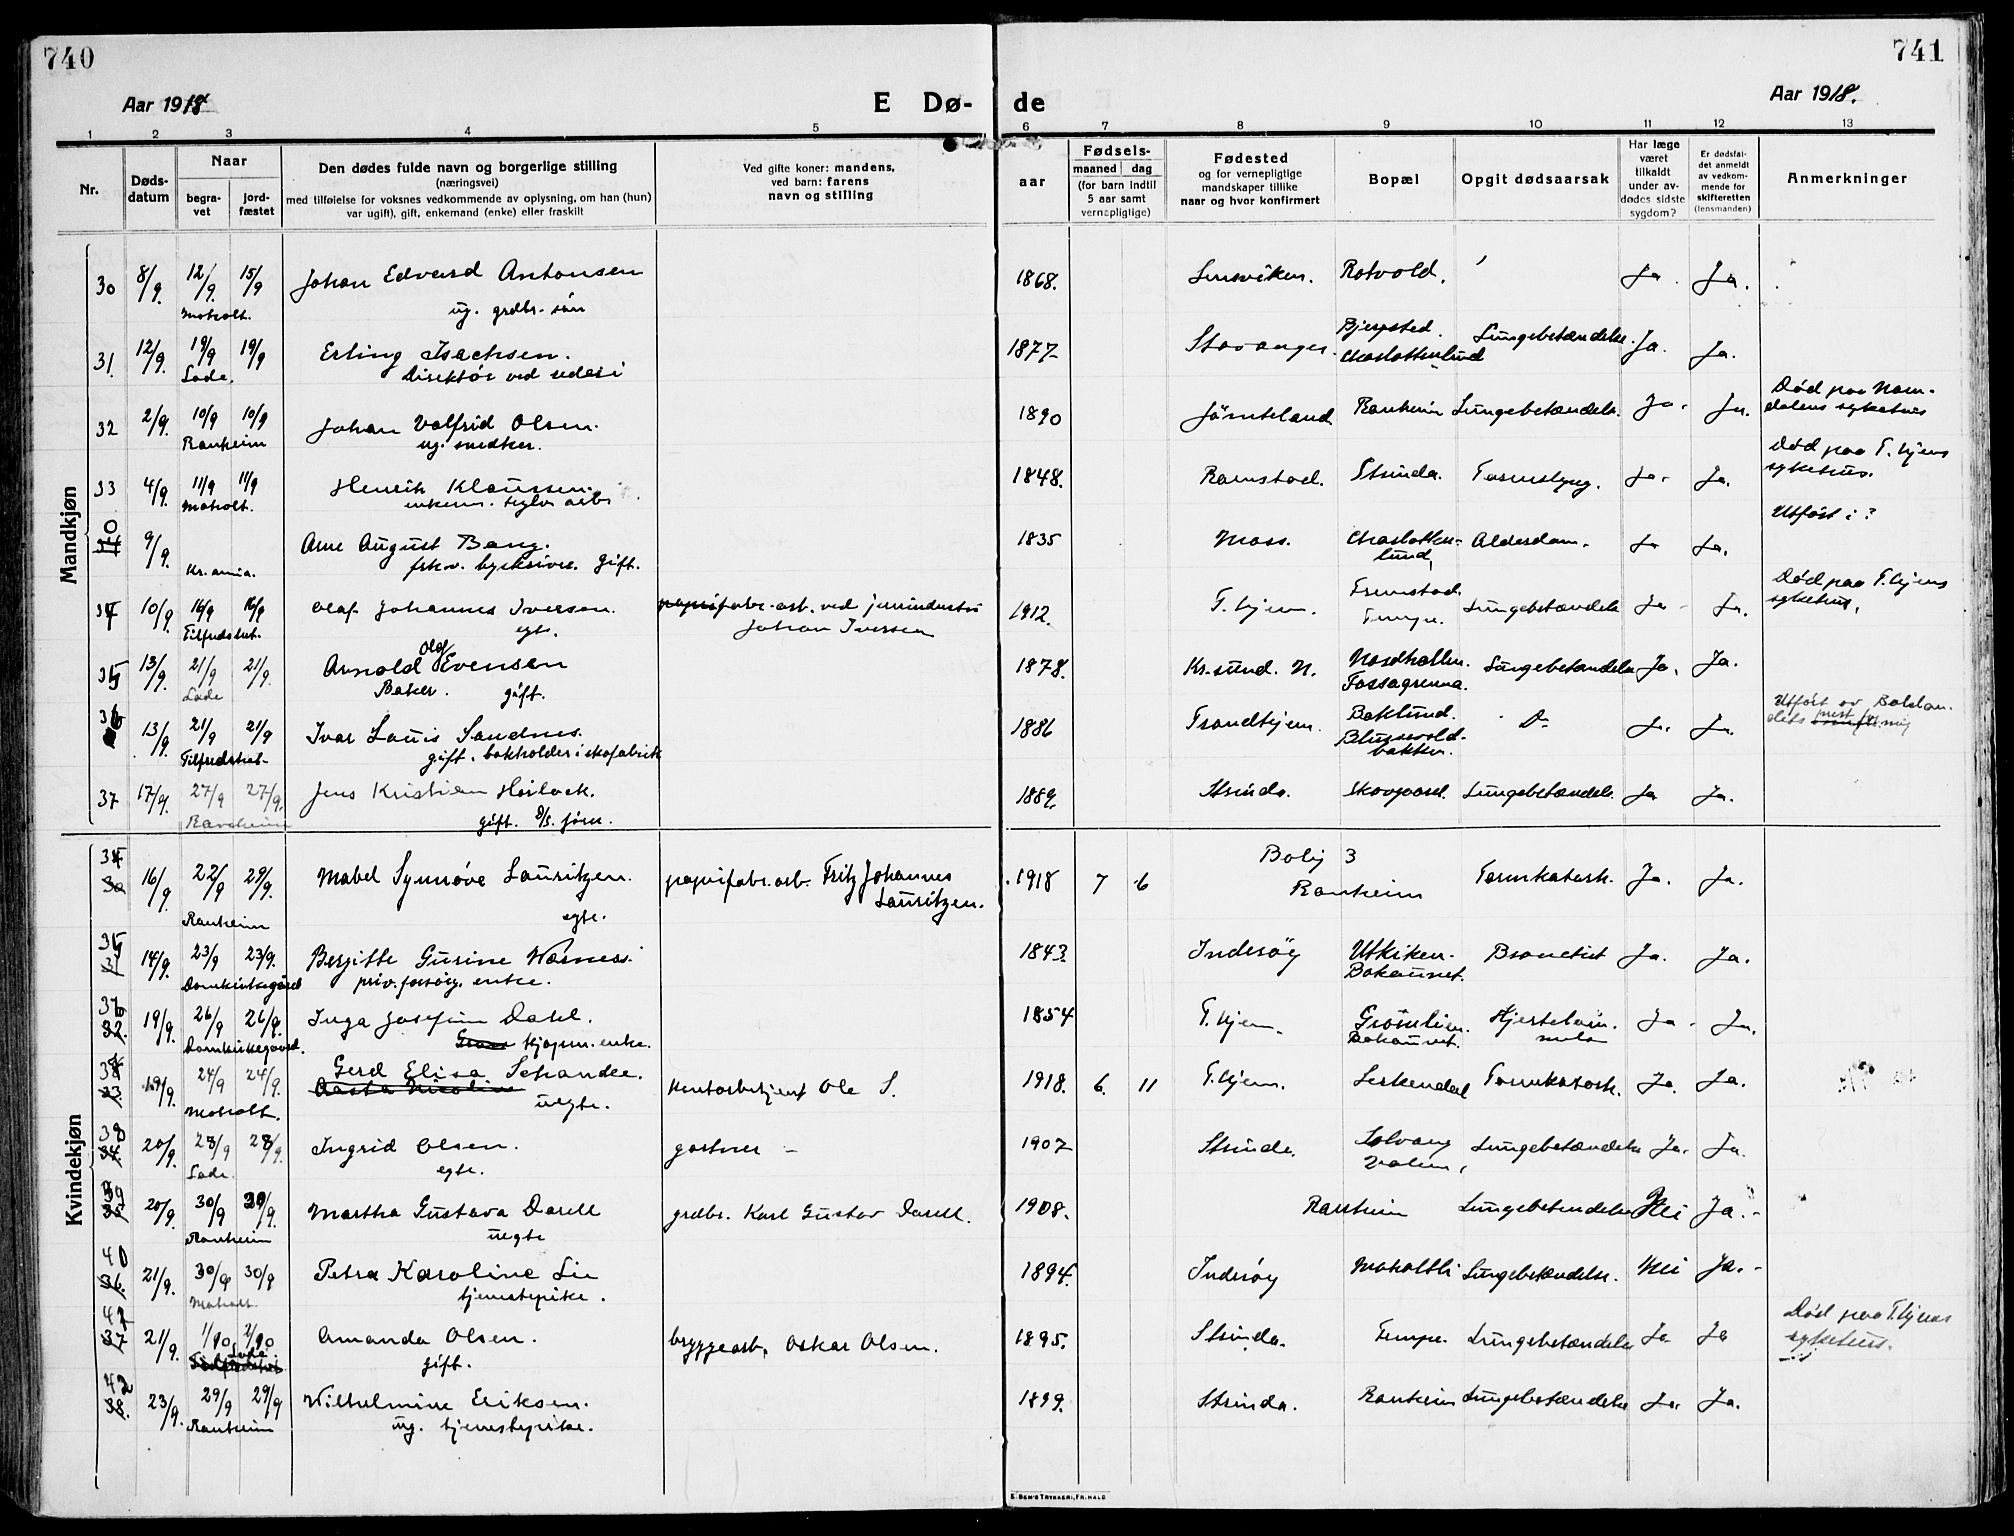 740
741
Aar 1918
E Dø-
de
Aar 1918.
1 2 3 4 5 6 7 8 9 10 11 12 13
Nr.
Døds-
datum
Naar
begra-
vet
jord-
fæstet
Den dødes fulde navn og borgerlige stilling
(næringsvei)
med tilføielse for voksnes vedkommende av oplysning, om han (hun)
var ugift), gift, enkemand (enke) eller fraskilt
Ved gifte koner: mandens,
ved barn: farens
navn og stilling
aar
Fødsels-
maaned dag
(for barn indtil
5 aar samt
vernepligtige)
Fødested
og for vernepligtige
mandskaper tillike
naar og hvor konfirmert
Bopæl
Opgit dødsaarsak
Har læge
været
tilkaldt
under av-
dødes sidste
sygdom?
Er dødsfal-
det anmeldt
av vedkom-
mende for
skifteretten
(lensmanden)
Anmerkninger
Mandkjøn
30 8/9. 12/9. 15/9 Johan Edvard Antonsen 1868. Rotvold. Ja. Ja.
Moholt. ug. grdbr. søn
31. 12/9. 19/9 19/9 Erling Isachsen. 1877 Stavanger. Lungebetændelse. Ja. Ja.
Lade. Direktør ved rederi Charlottenlund
32 2/9. 10/9 10/9 Johan Valfrid Olsen. 1890 Jämteland Ranheim Lungebetændels. Ja. Ja. Død paa Nam-
dalens sykehus
Ranheim ug. snedker.
33 4/9. 11/9 11/9 Henrik Klaussen. 1848. Ramstad. Strinda. Tarmslyng. Ja. Ja. Død paa T.hjems
sykehus.
Moholt. enkem. teglv. arb.
40 9/9. Arne August Bang. 1835 Moss. Charlotten-
lund, Alderdom. Ja Ja. Utført i ?
Kr.ania. gift.
34 10/9. 16/9 16/9 Olaf Johannes Iversen. 1912. T.hjem. Lungebetændels Ja Ja. Død paa T.hjems
sykehus.
Tilfredshet. egte. Johan Iversen Tempe.
35 13/9. 21/9 21/9. Arnold Olaf Evensen 1878. Kr.sund. N. Lungebetændelse Ja. Ja.
Lade Baker. gift. Fossagrenna.
36 13/9. 21/9 21/9 Ivar Louis Sandnes. 1886 Trondhjem. Baklund. Do Ja. Ja.
Tilfredshet. gift. bokholder i skofabrik
Blussuvold-
bakken.
37 17/9. 27/9 27/9. Jens Kristian 1889. Strinda. Skovgaard. Lungebetændels. Ja Ja.
Ranheim gift.
Kvindekjøn
34 30 16/9 22/9 29/9. Mabel Synnøve Lauritzen. papirfabr.arb. Fritz Johannes
Lauritzen. 1918 7 6 Bolig 3
Ranheim Tarmkatarh. Ja. Ja.
Ranheim egte.
35 31 14/9. 23/9 23/9. Bergitte Gurine Wærness. 1843. Inderøy Utkiken.
Bakaunet. Ja. Ja.
Domkirkegård priv. forsørg. enke.
36 32. 19/9. 26/9 26/9. Inga Josefine Dahl. 1854 T.hjem. Ja. Ja.
Domkirkegaard. kjøpm. enke. Bakaunet.
33 19/9. 24/9 24/9. Gerd Elisa Schandee. Ole S. 1918. 6. 11 T.hjem. Tarmkatarh. Ja. Ja.
Moholt. uegte.
38 34. 20/9. 28/9 28/9. Ingrid Olsen. gartner 1907 Strinda. Solvang Lungebetændelse Ja. Ja.
Lade. egte.
39 35 20/9. 30/9 30/9. Martha Gustava Darell grdbr. Karl Gustav Darell. 1908. Ranheim Lungebetændelse Nei Ja.
Ranheim uegte
40 36. 21/9. 30/9 30/9 Petra Karoline Lie 1894. Inderøy Moholtli Lungebetændelse. Nei Ja.
Moholt. tjenestepike.
41 37 21/9. 1/10 2/10 Amanda Olsen. bryggearb. Oskar Olsen. 1895. Strinda. Tempe. Lungebetændelse Ja Ja Død paa T.hjems
sykehus.
Lade gift.
42 38. 23/9. 29/9 29/9 Wilhelmine Eriksen. 1899. Strinda. Ranheim Lungebetændelse Ja. Ja.
Ranheim ug. tjenestepike.
E. SEM'S TRYKKERI, FR.HALD